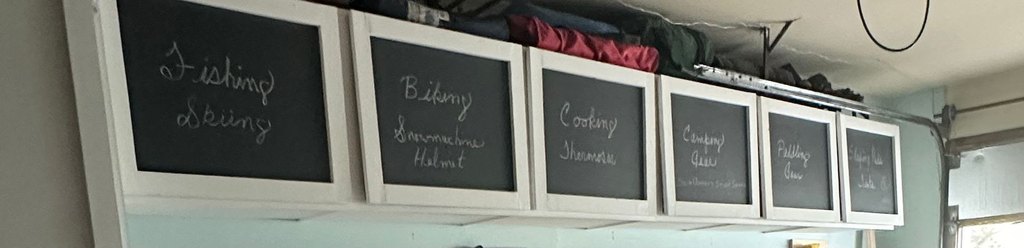 Fishing
Skiing
Biking
Snowmachine
Helmet
Cooking
Thermoses
Camping
Gear
Paddling
Gear
Sleeping Pads